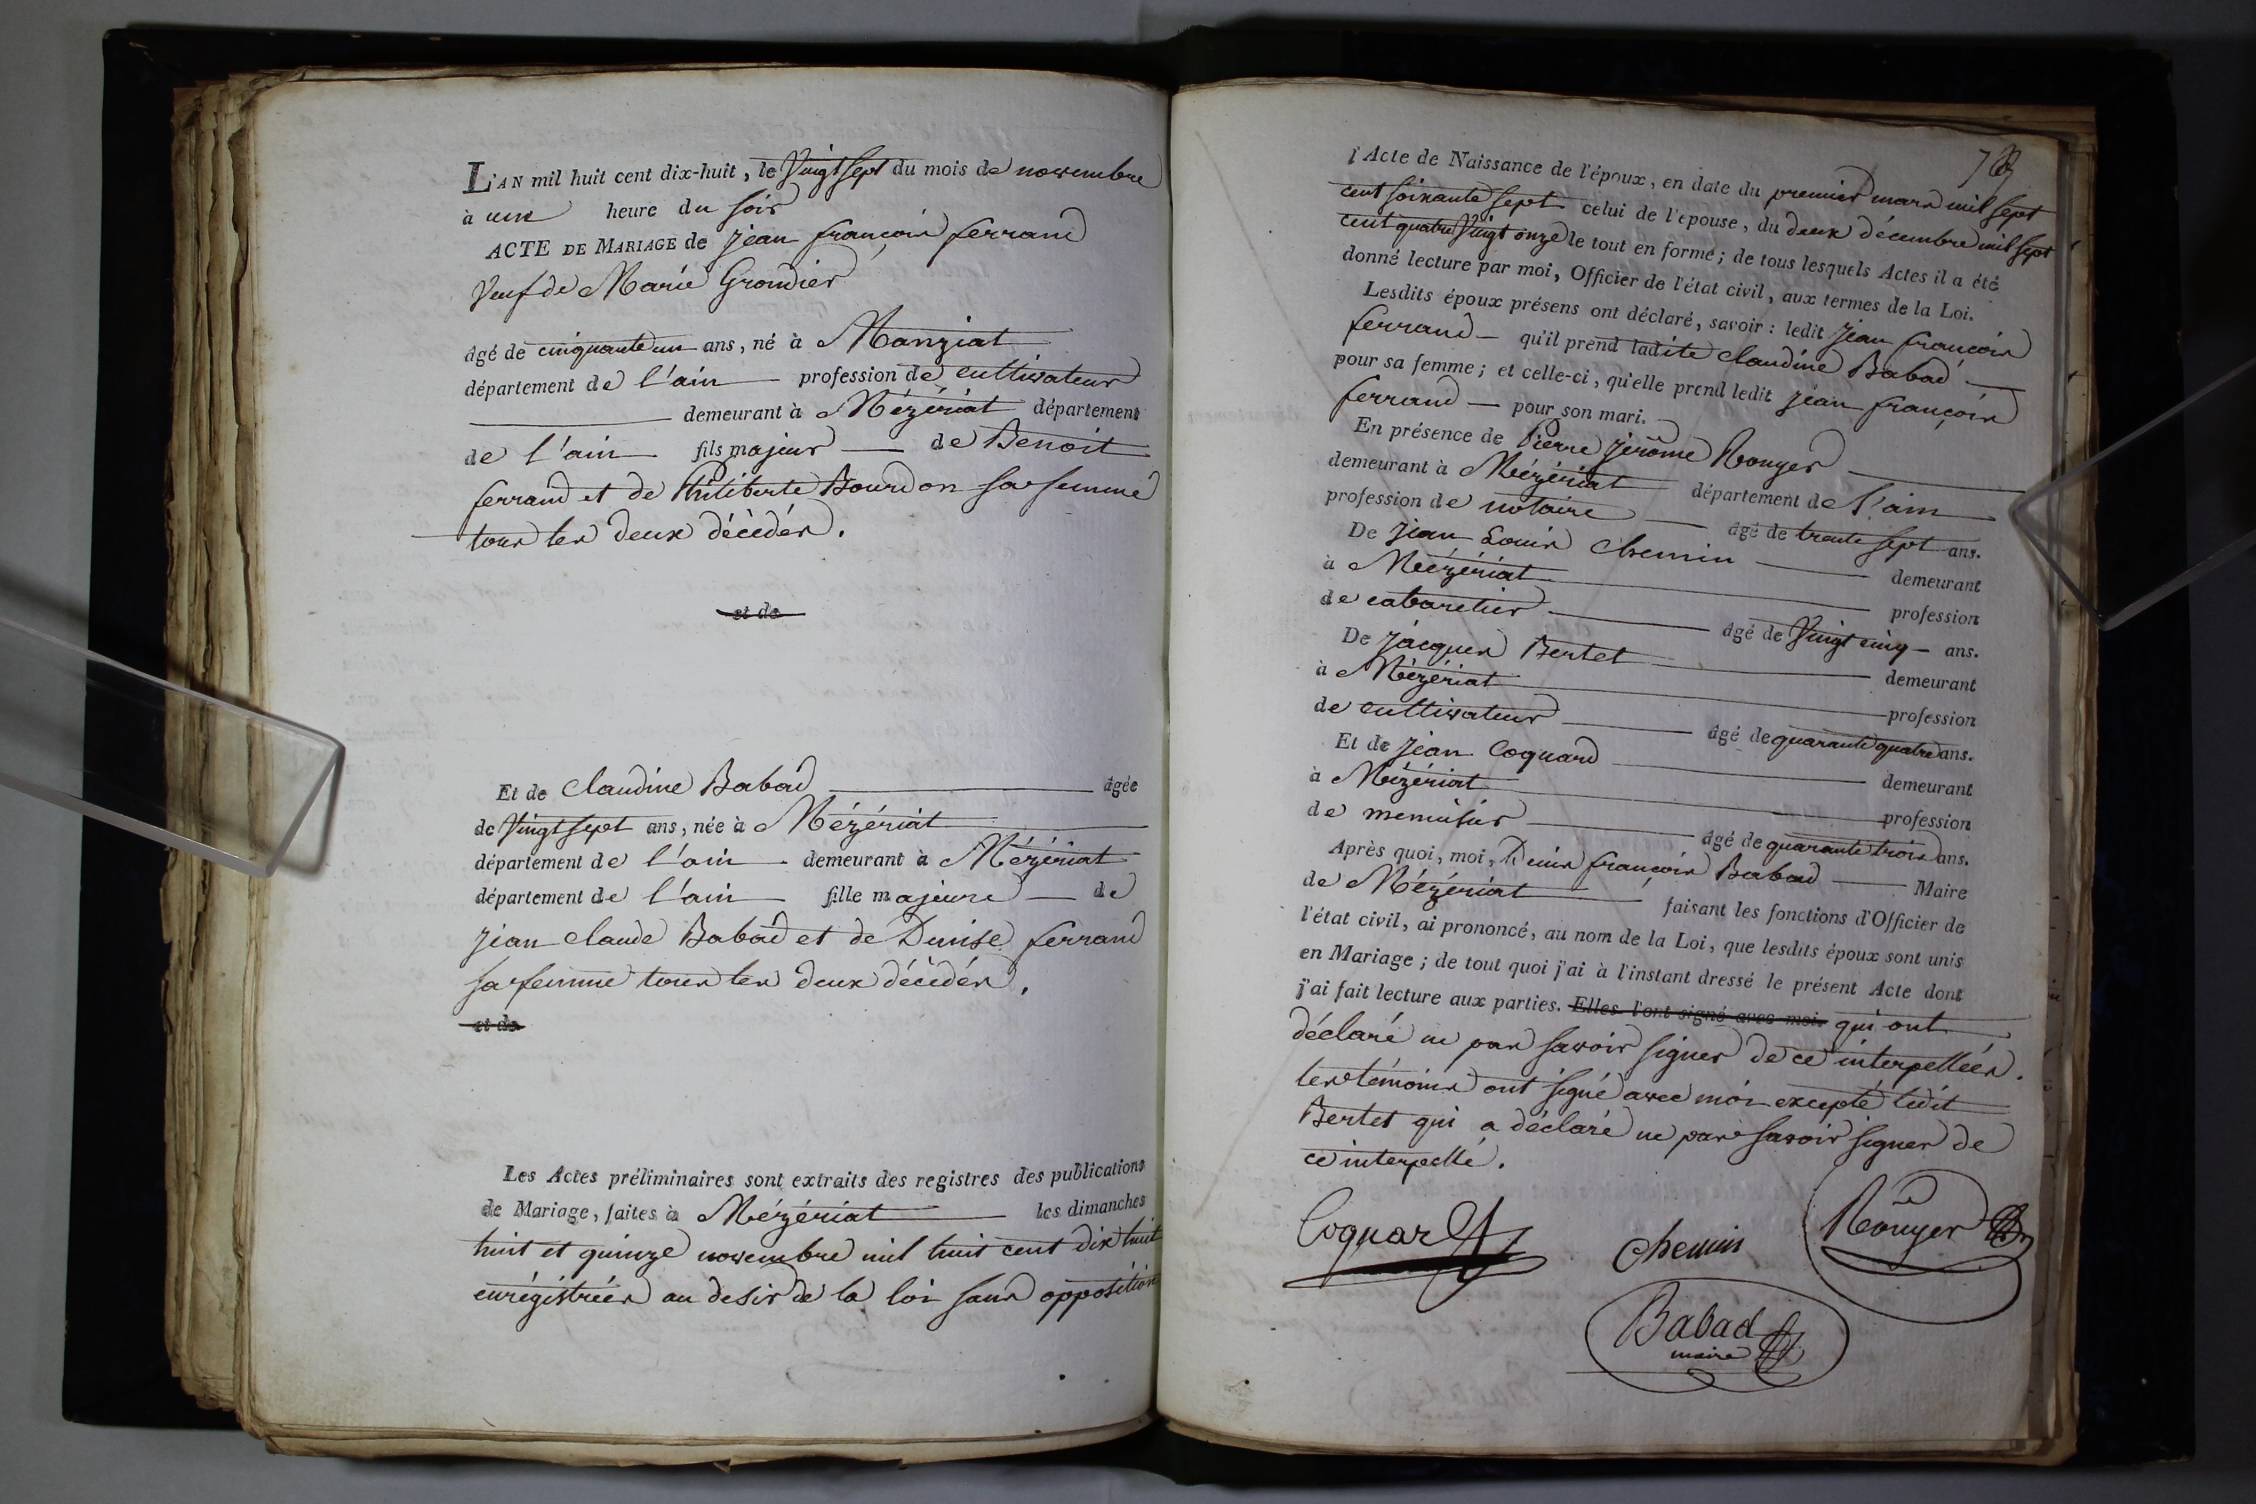 L'AN mil huit cent dix-huit, le Vingt sept du mois de novembre
à une heure du soir
ACTE DE MARIAGE de jean françois ferrand
Veuf de Marie Grondier
âgé de cinquante un ans, né à Manziat
département de l'ain profession de cultivateur
demeurant à Mézériat département
de l'ain fils majeur de Benoit
ferrand et de Philiberte Bourdon sa femme
tous les deux décédés.
et de
Et de Claudine Babad âgée
de Vingt sept ans, née à Mézériat
département de l'ain demeurant à Mézériat
département de l'ain fille majeure de
jean claude Babad et de Denise ferrand
sa femme tous les deux décédés.
et de
Les Actes préliminaires sont extraits des registres des publications
de Mariage, faites à Mézériat les dimanches
huit et quinze novembre mil huit cent dix huit
enrégistrées au desir de la loi sans opposition
l'Acte de Naissance de l'époux, en date du premier mars mil sept
cent soixante sept celui de l'épouse, du deux décembre mil sept
cent quatre Vingt onze le tout en forme; de tous lesquels Actes il a été
donné lecture par moi, Officier de l'état civil, aux termes de la Loi.
Lesdits époux présens ont déclaré, savoir: ledit jean françois
ferrand qu'il prend ladite claudine Babad
pour sa femme; et celle-ci, qu'elle prend ledit jean françois
ferrand pour son mari.
En présence de Pierre jerôme Rouyer
demeurant à Mézériat département de l'ain
profession de notaire âgé de trente sept ans.
De jean Louis Chemin demeurant
à Mézériat profession
de cabaretier âgé de Vingt cinq ans.
De jacques Bertet demeurant
à Mézériat profession
de cultivateur âgé de quarante quatre ans.
Et de jean Coquard demeurant
à Mézériat profession
de menuisier âgé de quarante trois ans.
Après quoi, moi, Denis françois Babad Maire
de Mézériat faisant les fonctions d'Officier de
l'état civil, ai prononcé, au nom de la Loi, que lesdits époux sont unis
en Mariage; de tout quoi j'ai à l'instant dressé le présent Acte dont
j'ai fait lecture aux parties. Elles l'ont signé avec moi. qui ont
déclaré ne pas savoir signer de ce interpellées.
les témoins ont signé avec moi excepté ledit
Bertet qui a déclaré ne pas savoir signer de
ce interpellé.
Coquard
chemin
Rouyer
Babad
maire